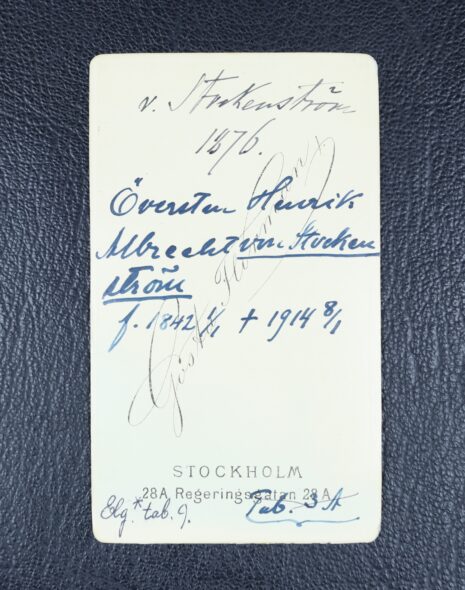 v. Stockenström
1876.
Översten Henrik
Albrecht von Stocken
ström
f. 1842 1/1 + 1914 8/1
Gösta Florman
STOCKHOLM
28A, Regeringsgatan 28A
Elg.* tab. 9.
Tab. 3 A